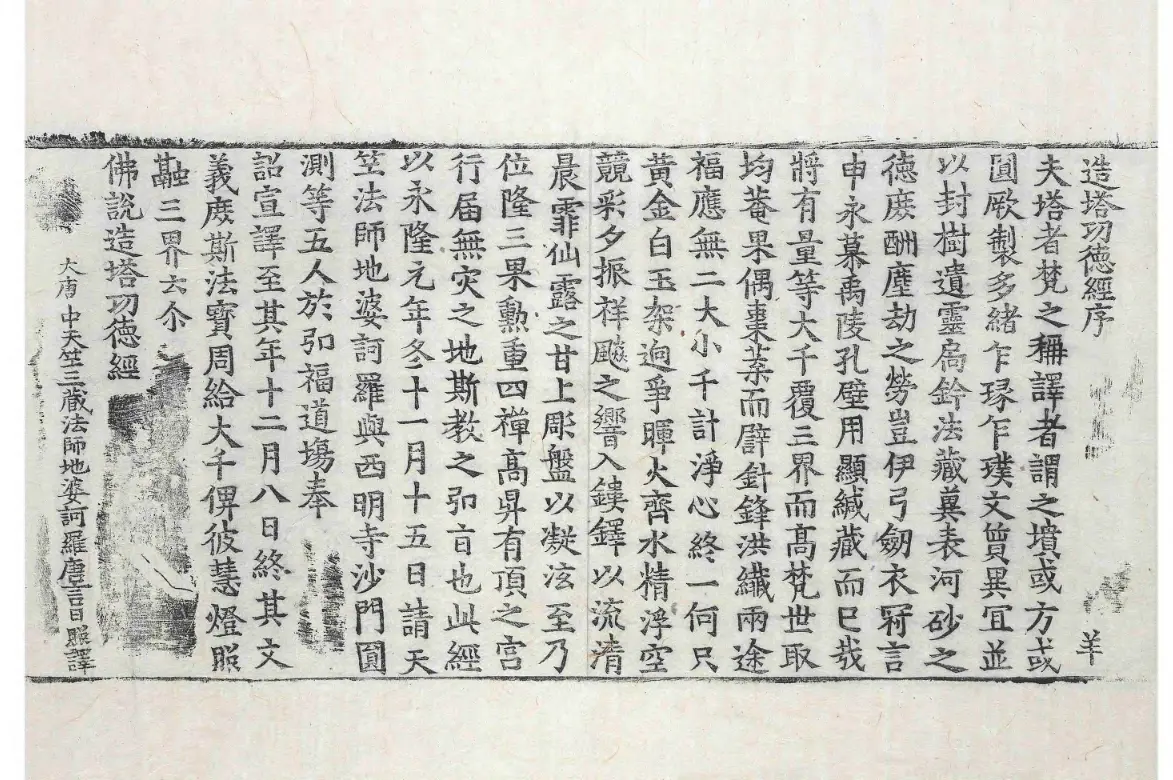 造塔功德經序 羊
夫塔者梵之稱譯者謂之墳或方或
圓厥製多緒乍琢乍璞文質異冝並
以封樹遺靈扃鈐法藏冀表河砂之
德庶酬塵劫之勞豈伊弓劒衣冠言
申永慕禹陵孔壁用顯緘藏而已哉
將有量等大千覆三界而高梵世取
均菴果偶棗葉而擗針鋒洪纖兩途
福應無二大小千計淨心終一何只
黃金白玉架逈爭暉火齊水精浮空
競彩夕振祥飈之響入鏤鐸以流清
晨霏仙露之甘上彫盤以凝泫至乃
位隆三果勲重四禪高昇有頂之宮
行届無灾之地斯教之弘旨也此經
以永隆元年冬十一月十五日請天
笁法師地婆訶羅與西明寺沙門圓
測等五人於弘福道塲奉
詔宣譯至其年十二月八日終其文
義庶斯法寶周給大千俾彼慧燈照
融三界云尒
佛說造塔功德經
大唐中天笁三藏法師地婆訶羅唐言日照譯